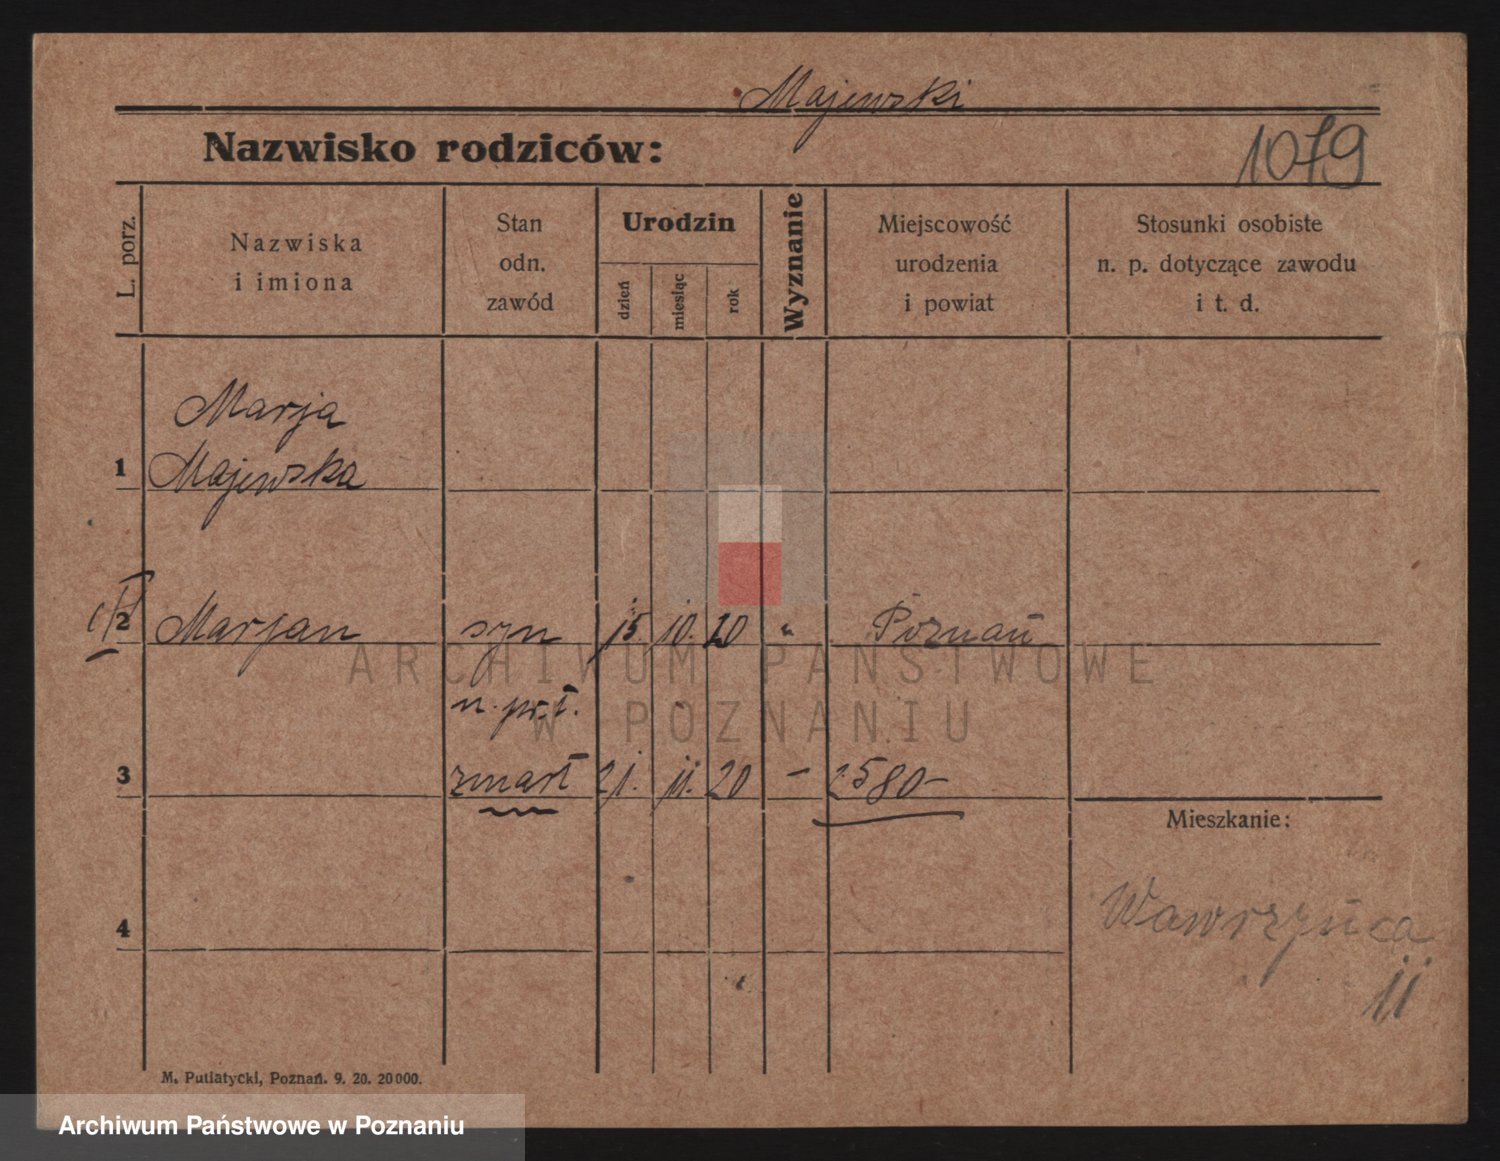 Majewski
Nazwisko rodziców:
1079
L. porz.
Nazwiska
i imiona
Stan
odn.
zawód
Urodzin
dzień
miesiąc
rok
Wyznanie
Miejscowość
urodzenia
i powiat
Stosunki osobiste
n. p. dotyczące zawodu
i t. d.
Marja
1 Majewska
2 Marjan syn 15. 10. 20 " Poznań
ARCHIWUM PAŃSTWOWE
W POZNANIU
3 zmarł 21. 11. 20 - 2580-
Mieszkanie:
4
Wawrzyńca
11
M. Putiatycki, Poznań. 9. 20. 20000.
Archiwum Państwowe w Poznaniu